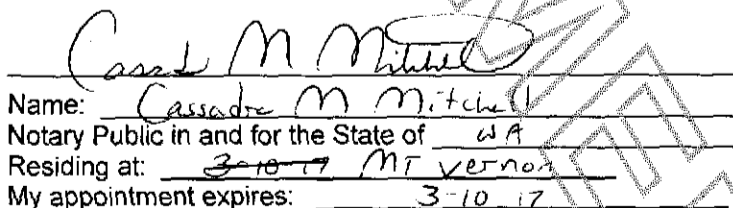 Cassad M Mitchell
Name: Cassadra M Mitchell
Notary Public in and for the State of WA
Residing at: 3-10-17 MT Vernon
My appointment expires: 3-10-17